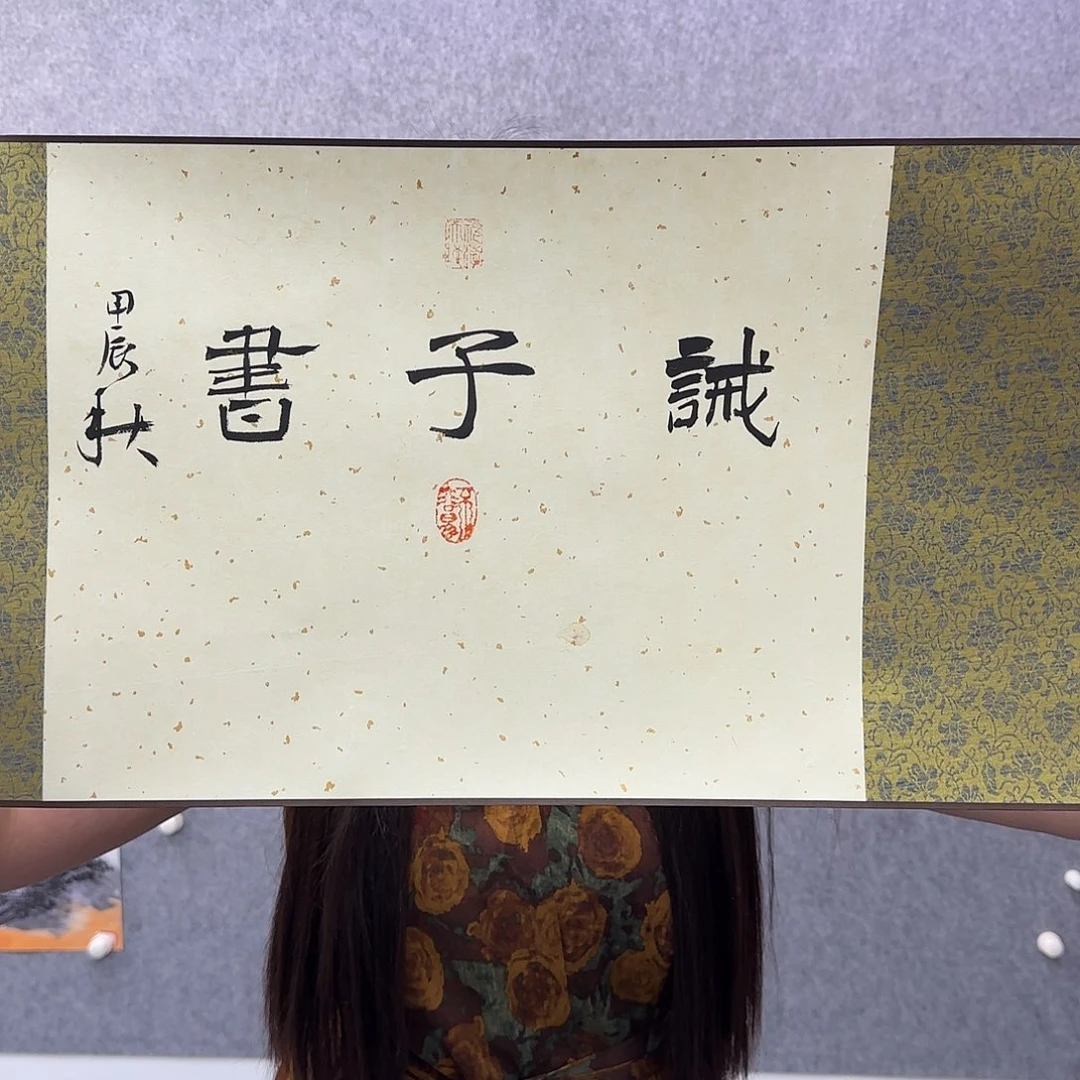 誡子書
甲辰秋